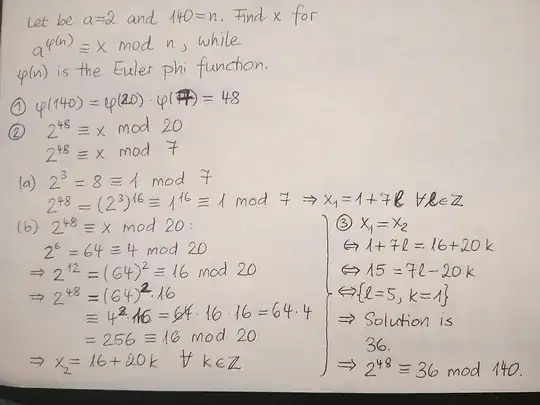 Let be a=2 and 140=n. Find x for
a^φ(n) ≡ x mod n, while
φ(n) is the Euler phi function.
① φ(140) = φ(20) · φ(7) = 48
② 2^48 ≡ x mod 20
2^48 ≡ x mod 7
(a) 2^3 = 8 ≡ 1 mod 7
2^48 = (2^3)^16 ≡ 1^16 ≡ 1 mod 7 ⇒ x₁ = 1+7l ∀l∈ℤ
(b) 2^48 ≡ x mod 20:
2^6 = 64 ≡ 4 mod 20
⇒ 2^12 = (64)^2 ≡ 16 mod 20
⇒ 2^48 = (64)^2 · 16
≡ 4^2 · 16 = 64 · 16 · 16 = 64 · 4
= 256 ≡ 16 mod 20
⇒ x₂ = 16 + 20k ∀ k∈ℤ
③ x₁ = x₂
⇔ 1+7l = 16+20k
⇔ 15 = 7l-20k
⇔ {l=5, k=1}
⇒ Solution is
36.
⇒ 2^48 ≡ 36 mod 140.